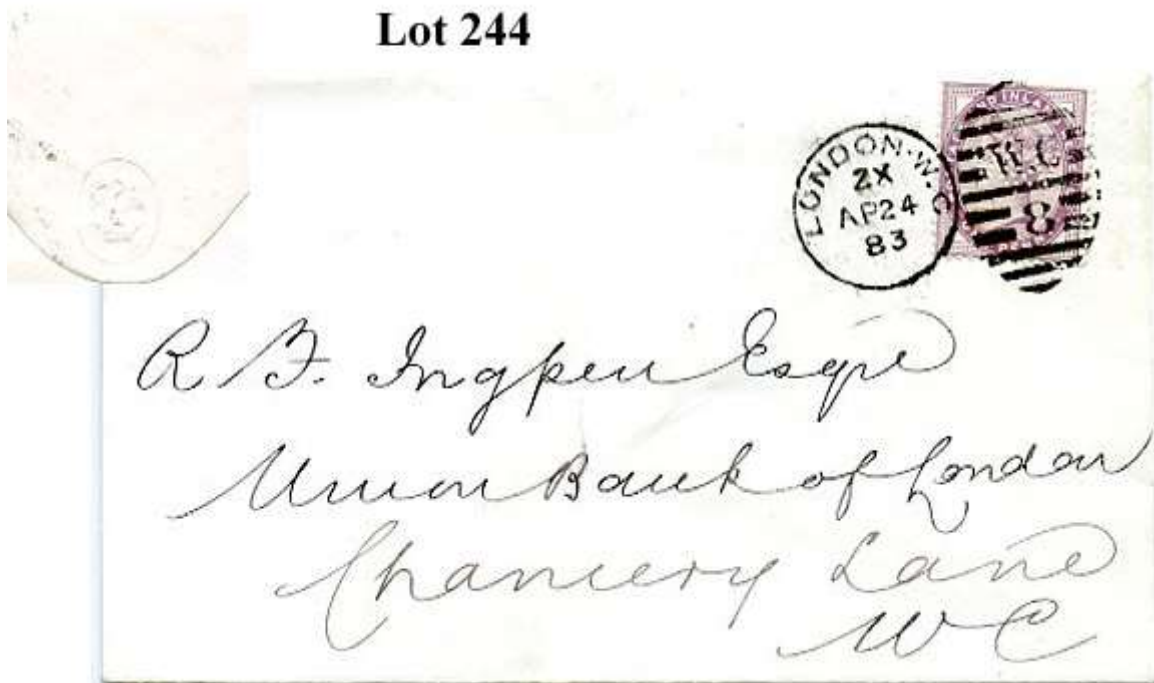 Lot 244
LONDON·W.C
ZX
AP24
83
W.C
8
R F. Ingpen Esqre
Union Bank of London
Chancery Lane
W C